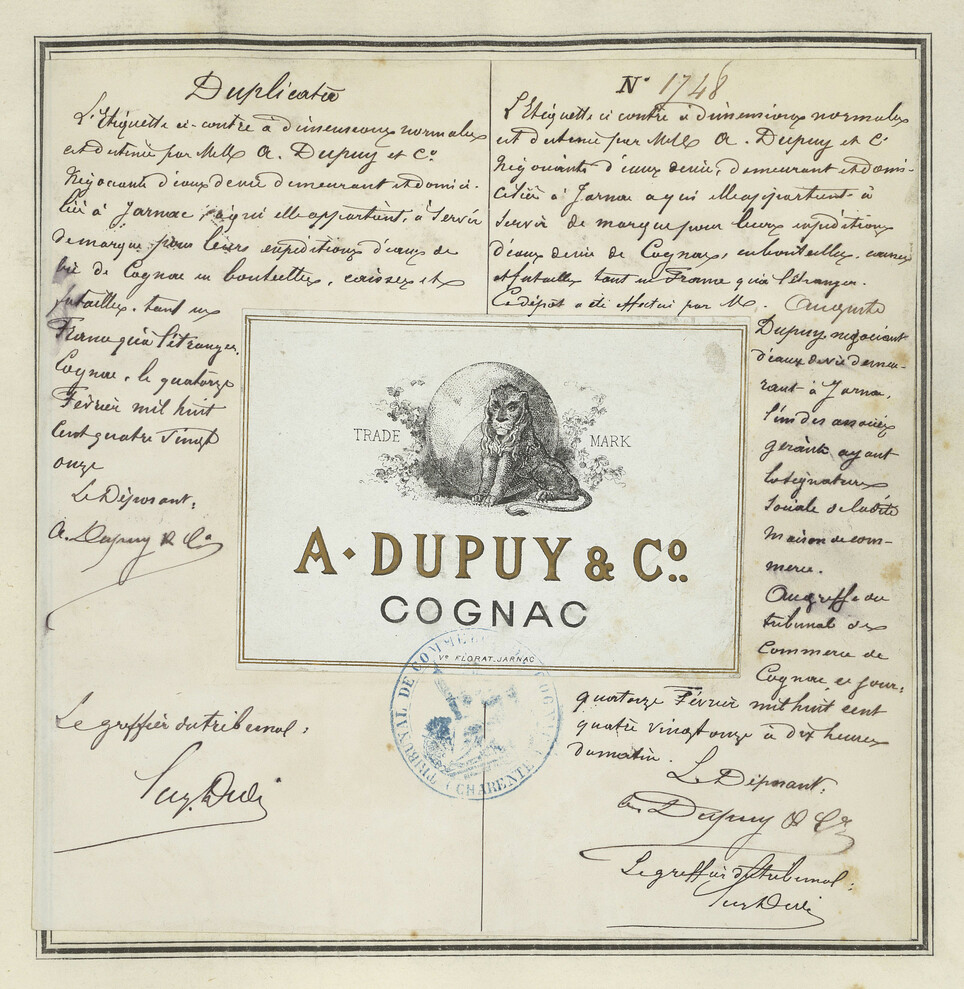 Duplicata
L'Etiquette ci-contre à dimensions normales
est détenue par MM A. Dupuy et Co
Négociants d'eaux de vie demeurant et domici-
liés à Jarnac, à qui elle appartient, à servir
de marque pour leurs expéditions d'eaux de
vie de Cognac en bouteilles, caisses et
futailles, tant en
France qu'à l'étranger.
Cognac, le quatorze
Février mil huit
cent quatre vingt
onze
Le Déposant:
A. Dupuy & Co
Le greffier du tribunal:
No 1748
L'Etiquette ci contre à dimensions normales
est détenue par MM A. Dupuy et Co
Négociants d'eaux de vie, demeurant et domi-
ciliés à Jarnac à qui elle appartient à
servir de marque pour leurs expéditions
d'eaux de vie de Cognac, en bouteilles, caisses
et futailles tant en France qu'à l'étranger.
Ce dépôt a été effectué par M. Auguste
Dupuy négociant
d'eaux de vie demeu-
rant à Jarnac,
l'un des associés
gérants ayant
la signature
sociale de la dite
maison de com-
merce.
Au greffe du
tribunal de
Commerce de
Cognac ce jour:
quatorze Février mil huit cent
quatre vingt onze à dix heures
du matin.
Le Déposant:
A. Dupuy & Co
Le greffier du tribunal:
TRADE MARK
A. DUPUY & Co.
COGNAC
Vve FLORAT. JARNAC
TRIBUNAL DE COMMERCE COGNAC
(CHARENTE)